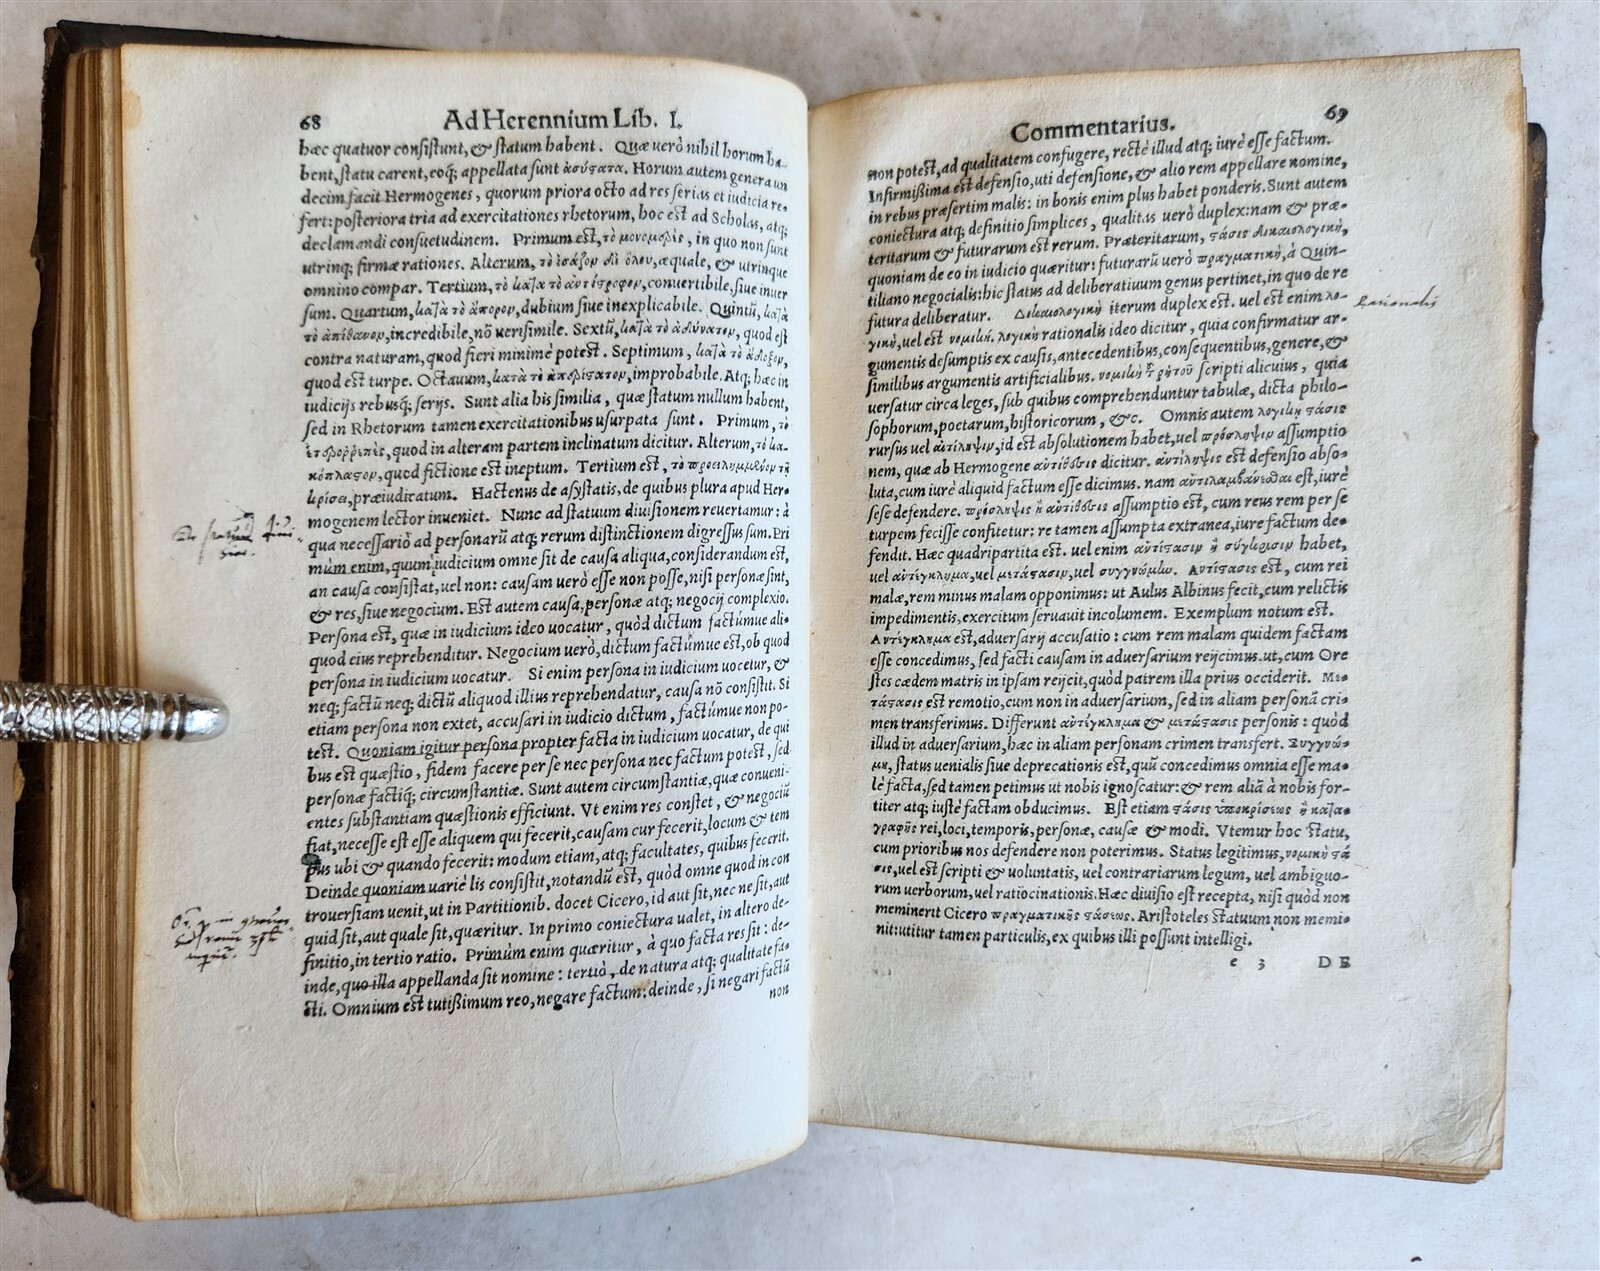 68 Ad Herennium Lib. I.
hæc quatuor consistunt, & statum habent. Quæ uerò nihil horum ha-
bent, statu carent, eoq́; appellata sunt ἀσύστατα. Horum autem genera un
decim facit Hermogenes, quorum priora octo ad res serias et iudicia re-
fert: posteriora tria ad exercitationes rhetorum, hoc est ad Scholas, atq;
declamandi consuetudinem. Primum est, τὸ μονομερὲς, in quo non sunt
utrinq; firmæ rationes. Alterum, τὸ ἰσάζον δι' ὅλου, æquale, & utrinque
omnino compar. Tertium, τὸ κατὰ τὸ ἀντίστροφον, conuertibile, siue inuer
sum. Quartum, κατὰ τὸ ἄπορον, dubium siue inexplicabile. Quintū, κατὰ
τὸ ἀπίθανον, incredibile, nō uerisimile. Sextū, κατὰ τὸ ἀδύνατον, quod est
contra naturam, quod fieri minimè potest. Septimum, κατὰ τὸ ἄδοξον,
quod est turpe. Octauum, κατὰ τὸ ἀπερίστατον, improbabile. Atq; hæc in
iudicijs rebusq́; serijs. Sunt alia his similia, quæ statum nullum habent,
sed in Rhetorum tamen exercitationibus usurpata sunt. Primum, τὸ
ἑτερορρεπὲς, quod in alteram partem inclinatum dicitur. Alterum, τὸ κα-
κόπλαστον, quod fictione est ineptum. Tertium est, τὸ προειλημμένον τῇ
κρίσει, præiudicatum. Hactenus de asystatis, de quibus plura apud Her-
mogenem lector inueniet. Nunc ad statuum diuisionem reuertamur: à
qua necessariò ad personarū atq; rerum distinctionem digressus sum. Pri
mùm enim, quum iudicium omne sit de causa aliqua, considerandum est,
an causa consistat, uel non: causam uerò esse non posse, nisi personæ sint,
& res, siue negocium. Est autem causa, personæ atq; negocij complexio.
Persona est, quæ in iudicium ideo uocatur, quòd dictum factúmue ali-
quod eius reprehenditur. Negocium uerò, dictum factúmue est, ob quod
persona in iudicium uocatur. Si enim persona in iudicium uocetur, &
neq; factū neq; dictū aliquod illius reprehendatur, causa nō consistit. Si
etiam persona non extet, accusari in iudicio dictum, factúmue non po-
test. Quoniam igitur persona propter facta in iudicium uocatur, de qui
bus est quæstio, fidem facere per se nec persona nec factum potest, sed
personæ factiq́; circumstantiæ. Sunt autem circumstantiæ, quæ conueni-
entes substantiam quæstionis efficiunt. Vt enim res constet, & negociū
fiat, necesse est esse aliquem qui fecerit, causam cur fecerit, locum & tem
pus ubi & quando fecerit: modum etiam, atq; facultates, quibus fecerit.
Deinde quoniam uariè lis consistit, notandū est, quòd omne quod in con
trouersiam uenit, ut in Partitionib. docet Cicero, id aut sit, nec ne sit, aut
quid sit, aut quale sit, quæritur. In primo coniectura ualet, in altero de-
finitio, in tertio ratio. Primùm enim quæritur, à quo facta res sit: de-
inde, quo illa appellanda sit nomine: tertiò, de natura atq; qualitate fa-
cti. Omnium est tutißimum reo, negare factum: deinde, si negari factū
non
Commentarius. 69
non potest, ad qualitatem confugere, rectè illud atq; iurè esse factum.
Infirmißima est defensio, uti defensione, & alio rem appellare nomine,
in rebus præsertim malis: in bonis enim plus habet ponderis. Sunt autem
coniectura atq; definitio simplices, qualitas uerò duplex: nam & præ-
teritarum & futurarum est rerum. Præteritarum, στάσις δικαιολογικὴ,
quoniam de eo in iudicio quæritur: futurarū uerò πραγματικὴ, à Quin-
tiliano negocialis: hic status ad deliberatiuum genus pertinet, in quo de re
futura deliberatur. Δικαιολογικὴ iterum duplex est. uel est enim λο-
γικὴ, uel est νομικὴ. λογικὴ rationalis ideo dicitur, quia confirmatur ar-
gumentis desumptis ex causis, antecedentibus, consequentibus, genere, &
similibus argumentis artificialibus. νομικὴ ῥητοῦ scripti alicuius, quia
uersatur circa leges, sub quibus comprehenduntur tabulæ, dicta philo-
sophorum, poetarum, historicorum, &c. Omnis autem λογικὴ στάσις
rursus uel ἀντίληψιν, id est absolutionem habet, uel πρόσληψιν assumptio
nem, quæ ab Hermogene ἀντίθεσις dicitur. ἀντίληψις est defensio abso-
luta, cum iurè aliquid factum esse dicimus. nam ἀντιλαμβάνεσθαι est, iurè
sese defendere. πρόσληψις ἢ ἀντίθεσις assumptio est, cum reus rem per se
turpem fecisse confitetur: re tamen assumpta extranea, iure factum de-
fendit. Hæc quadripartita est. uel enim ἀντίστασιν ἢ σύγκρισιν habet,
uel ἀντέγκλημα, uel μετάστασιν, uel συγγνώμην. Ἀντίστασις est, cum rei
malæ, rem minus malam opponimus: ut Aulus Albinus fecit, cum relictis
impedimentis, exercitum seruauit incolumem. Exemplum notum est.
Ἀντέγκλημα est, aduersarij accusatio: cum rem malam quidem factam
esse concedimus, sed facti causam in aduersarium reijcimus. ut, cum Ore
stes cædem matris in ipsam reijcit, quòd patrem illa prius occiderit. Με-
τάστασις est remotio, cum non in aduersarium, sed in aliam personā cri-
men transferimus. Differunt ἀντέγκλημα & μετάστασις personis: quòd
illud in aduersarium, hæc in aliam personam crimen transfert. Συγγνώ-
μη, status uenialis siue deprecationis est, quū concedimus omnia esse ma-
lè facta, sed tamen petimus ut nobis ignoscatur: & rem aliā à nobis for-
titer atq; iustè factam obducimus. Est etiam στάσις ὑποκρίσεως ἢ καταγραφῆς rei, loci, temporis, personæ, causæ & modi. Vtemur hoc statu,
cum prioribus nos defendere non poterimus. Status legitimus, νομικὴ στά
σις, uel est scripti & uoluntatis, uel contrariarum legum, uel ambiguo-
rum uerborum, uel ratiocinationis. Hæc diuisio est recepta, nisi quòd non
meminerit Cicero πραγματικῆς στάσεως. Aristoteles statuum non memi-
nit: utitur tamen particulis, ex quibus illi possunt intelligi.
e 3 DE
Rationalis